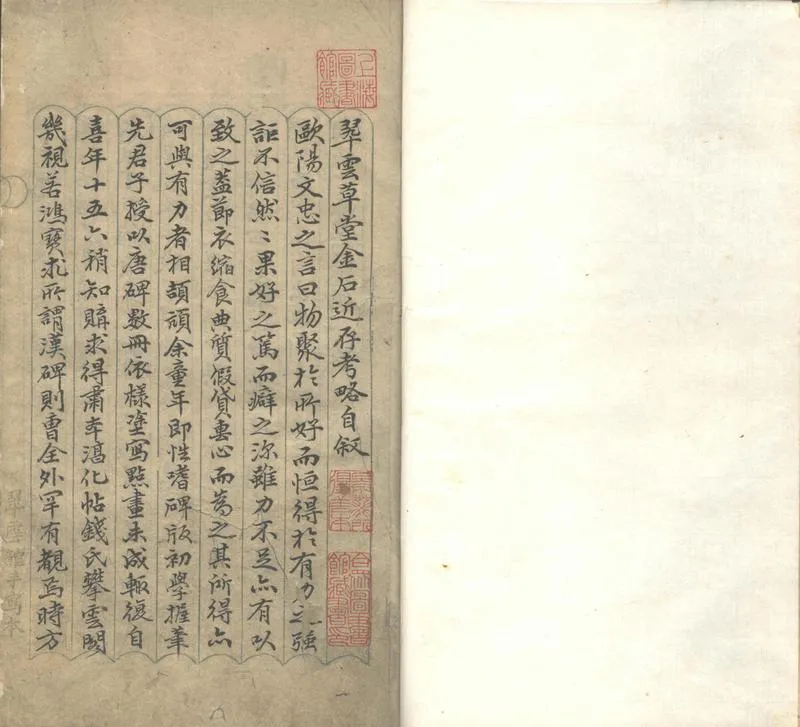 上海圖書館藏
翠雲草堂金石近存考略自敘
歐陽文忠之言曰物聚於所好而恒得於有力之強
詎不信然〻果好之篤而癖之深雖力不足亦有以
致之蓋節衣縮食典質假貸專心而為之其所得亦
可與有力者相頡頏余童年即性嗜碑版初學握筆
先君子授以唐碑數冊依樣塗寫點畫未成輒復自
喜年十五六稍知購求得肅本淳化帖錢氏攀雲閣
幾視若鴻寶求所謂漢碑則曹全外罕有覯焉時方